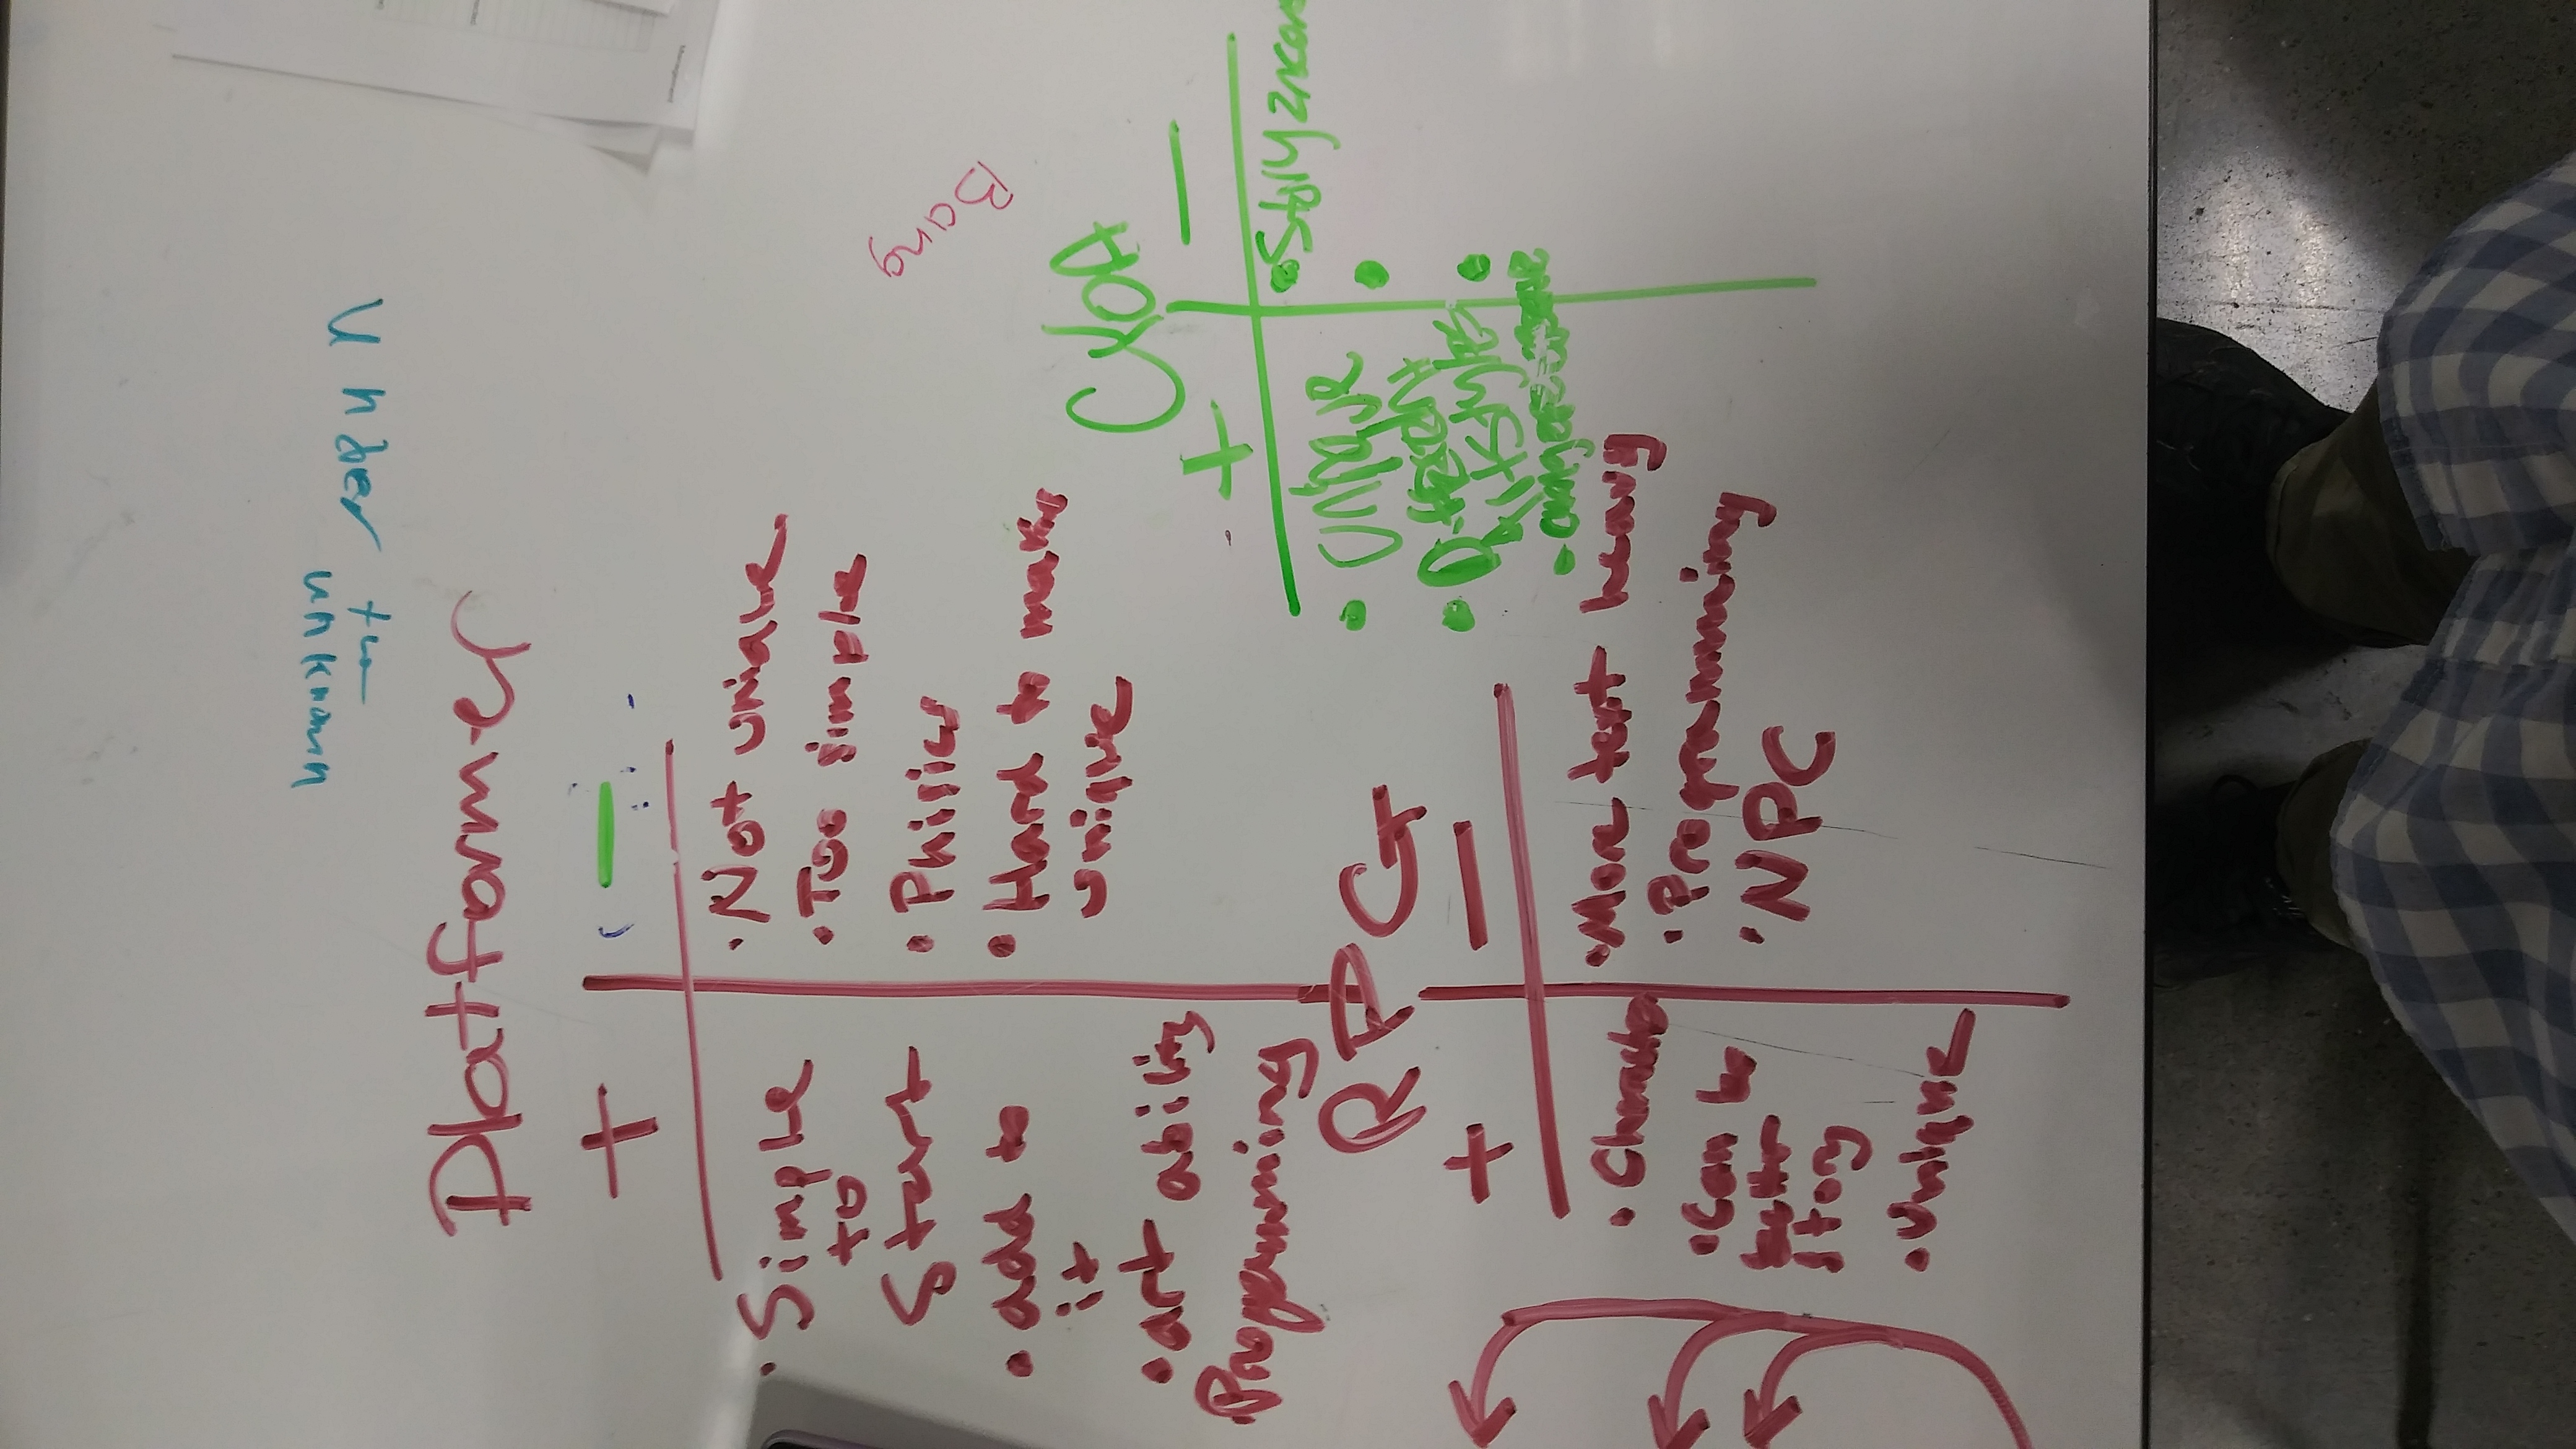 Under the
unknown
Platformer
+ –
• Simple
to
Start
• add to
it
• art ability
Programming
• Not uniaue
• Too simple
• Phisics
• Hard to make
unique
Bang
CYOA
+ –
• Unique
• Storyline
RPG
+ –
• Can be
better
story
• unique
• More text heavy
• Programming
• NPC
Management